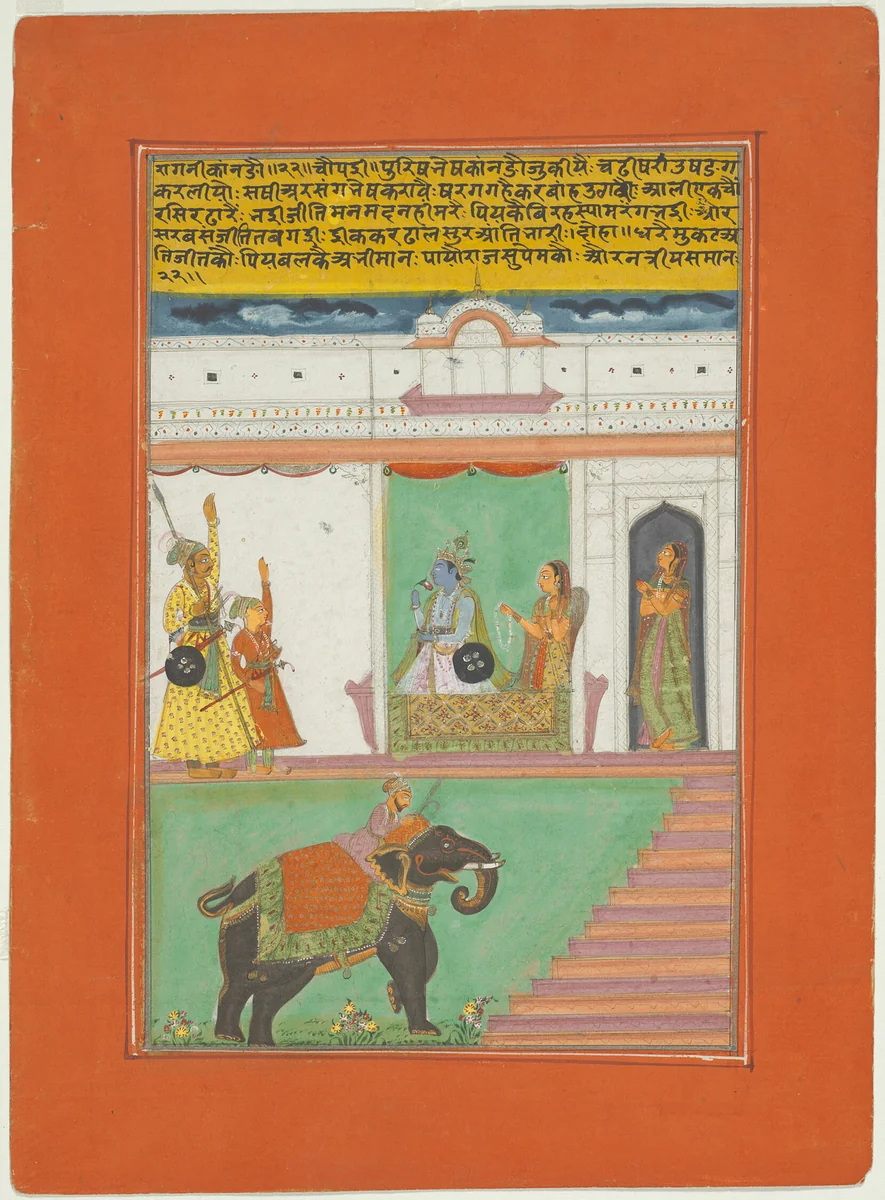 रागनी कांनडौ ॥२२॥ चौपई ॥ पुरिष नेष कांनडौ जु कीयै: चढी षरी उ षडग
कर लीयौ: सषी अर संग नेष करावै: षरग गहै कर बांह उगावै: आली एक चौं
र सिर ढारै: नई जीति मन मदन ही मरै: पिय कै बिरह स्पाम रंग नई: और
सरबस जीति तब गई: ईक कर ढाल सुर आति नारी: ॥दोहा॥ धरै मुकट अ
ति जीत कौ: पिय बल कै अनीमान: पायौ राज सुपेम कौ: और न त्रीय समान:
२२॥